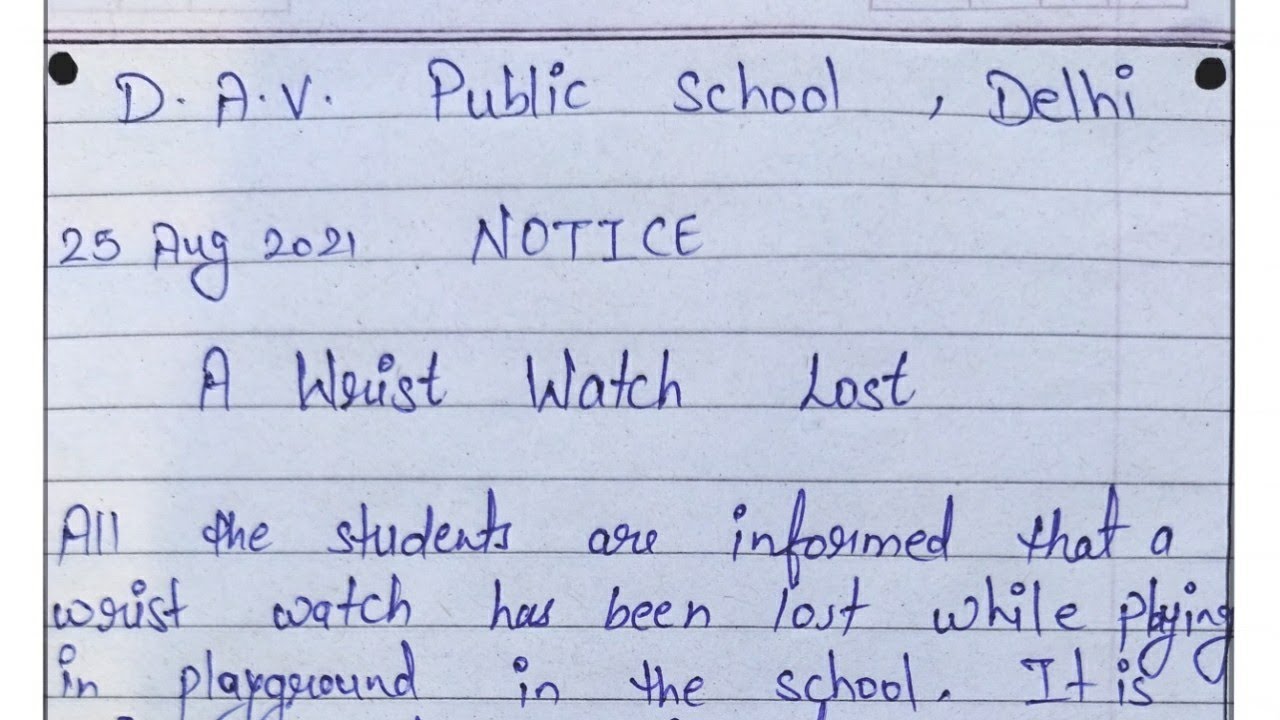 D. A. V. Public School , Delhi
25 Aug 2021 NOTICE
A Wrist Watch Lost
All the students are informed that a
wrist watch has been lost while playing
in playground in the school. It is